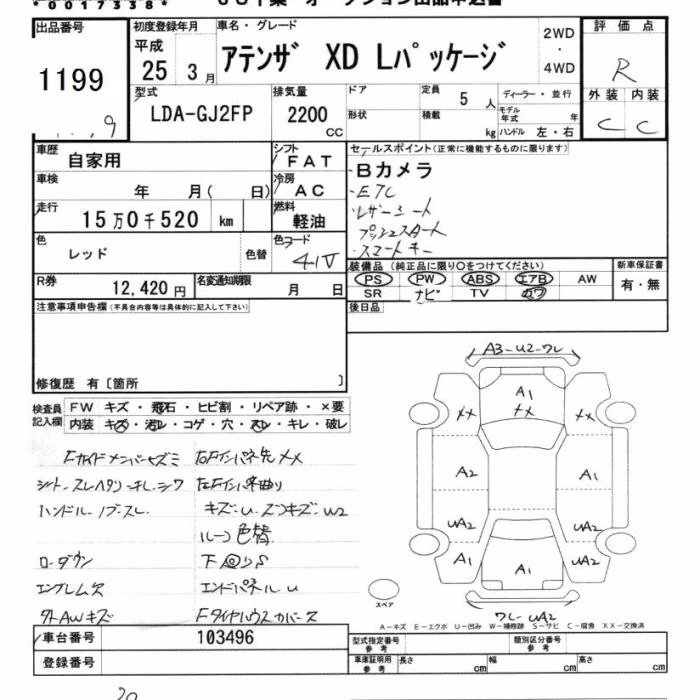 *0017338*
出品番号
1199
初度登録年月
平成
25 3月
車名・グレード
アテンザ XD Lパッケージ
2WD
・
4WD
評価点
R
外装 内装
C C
型式
LDA-GJ2FP
排気量
2200
CC
ドア
形状
定員
5 人
積載
kg
ディーラー・並行
モデル年式 年
ハンドル 左・右
車歴
自家用
シフト
FAT
車検
年 月( 日)
冷房
AC
走行
15万0千520 km
燃料
軽油
色
レッド
色替
色コード
41V
R券
12,420円
名変通知期限
月 日
セールスポイント(正常に機能するものに限ります)
Bカメラ
・ETC
・レザーシート
・プッシュスタート
・スマートキー
装備品 (純正品に限り○をつけてください)
PS PW ABS エアB AW
SR ナビ TV カワ
新車保証書
有・無
後日品
注意事項申告欄(不具合内容等は具体的に記入して下さい)
修復歴 有〔箇所 〕
検査員記入欄
FW キズ・飛石・ヒビ割・リペア跡・×要
内装 キズ・汚レ・コゲ・穴・スレ・キレ・破レ
シート・スレ
ハンドル・ノブ・スレ
キズ・U
色替
ローダウン
下回りS
エンブレム欠
エンドパネルU
外AWキズ
車台番号
103496
登録番号
A3-U2-ワレ
A1
XX
XX
XX
A2
A1
UA2
UA2
A1
A1
UA2
ワレ-UA2
スペア
A-キズ E-エクボ U-凹み W-補修跡 S-サビ C-腐食 XX-交換済
型式指定番号
参考
類別区分番号
参考
車庫証明用
参考
長さ cm
幅 cm
高さ cm
20